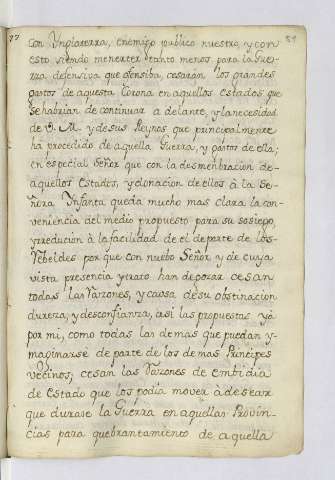 77
59
con Ynglaterra, enemigo publico nuestro, y con
esto siendo menester tanto menos para la Gue-
rra defensiva que ofensiba, cesarán los grandes
gastos de aquesta Corona en aquellos estados que
se habrian de continuar a delante, y la necesidad
de V. M. y de sus Reynos que principalmente
ha procedido de aquella Guerra, y gastos de ella;
en especial Señor que con la desmenbracion de
aquellos Estados, y donacion de ellos à la Se-
ñora Ynfanta queda mucho mas clara la con-
veniencia del medio propuesto para su sosiego,
y rreducion à la facilidad de el de parte de los
Rebeldes por que con nuebo Señor, y de cuya
vista presencia y trato han de gozar cesan
todas las Razones, y causa de su obstinacion
dureza, y desconfianza, asi las propuestas yà
por mi, como todas las demas que puedan y-
maginarse de parte de los demas Principes
vecinos, cesan las Razones de embidia
de Estado que los podia mover à desear
que durase la Guerra en aquellas Provin-
cias para quebrantamiento de aquella